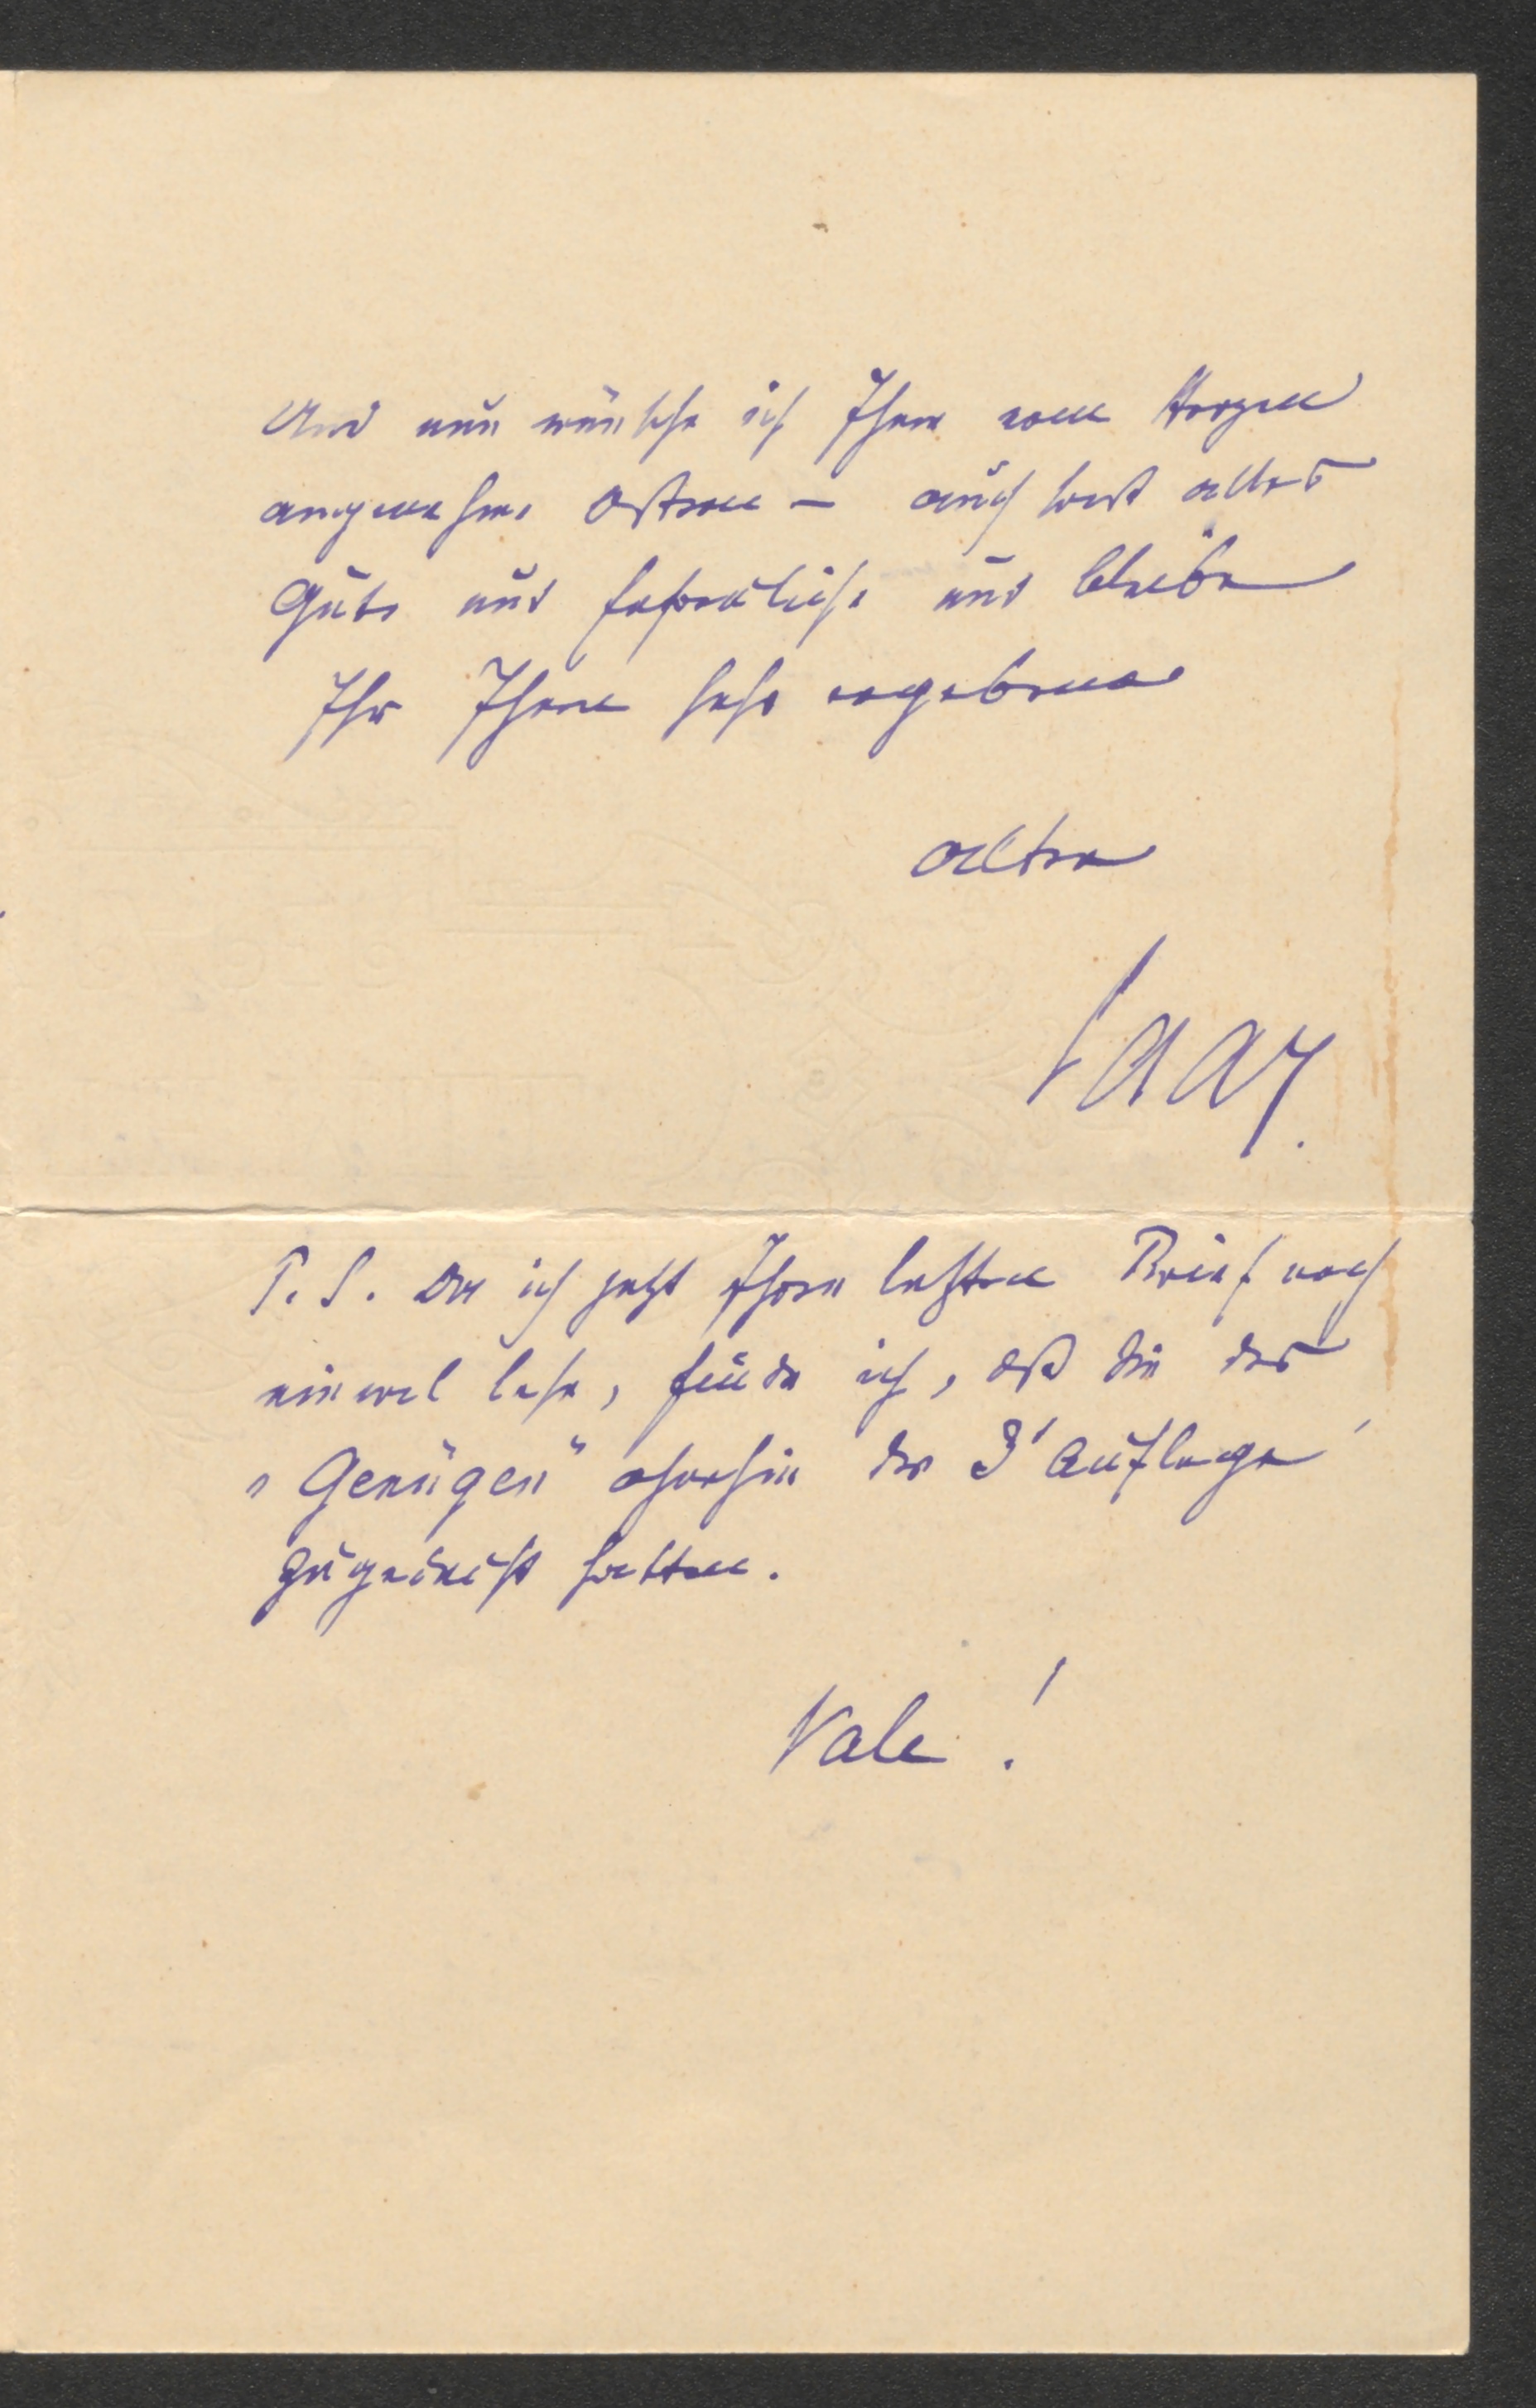 Und nun wünsche ich Ihnen vom Herzen
angenehme Ostern – auch sonst alles
Gute und Ersprießliche und bleibe
Ihr Ihnen sehr ergebener
alter
Saar.
P. S. Da ich jetzt Ihren letzten Brief noch
einmal lese, finde ich, daß Sie das
„Genügen" ohnehin der 3' Auflage
zugedacht hatten.
Vale!